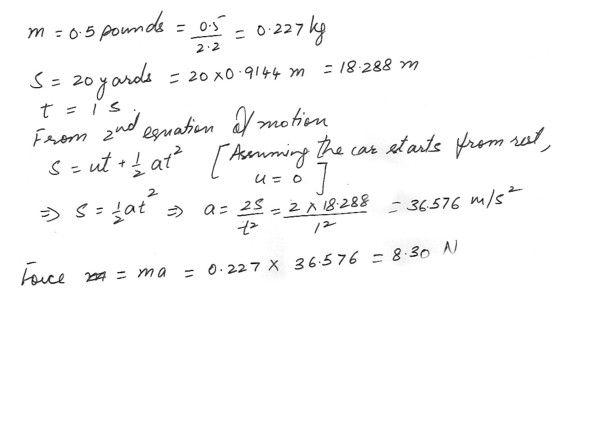 m = 0.5 pounds = 0.5/2.2 = 0.227 kg
S = 20 yards = 20 x 0.9144 m = 18.288 m
t = 1 s.
From 2nd equation of motion
S = ut + 1/2 at² [Assuming the car starts from rest, u = 0]
⇒ S = 1/2 at² ⇒ a = 2S/t² = 2 x 18.288/1² = 36.576 m/s²
Force = ma = 0.227 x 36.576 = 8.30 N